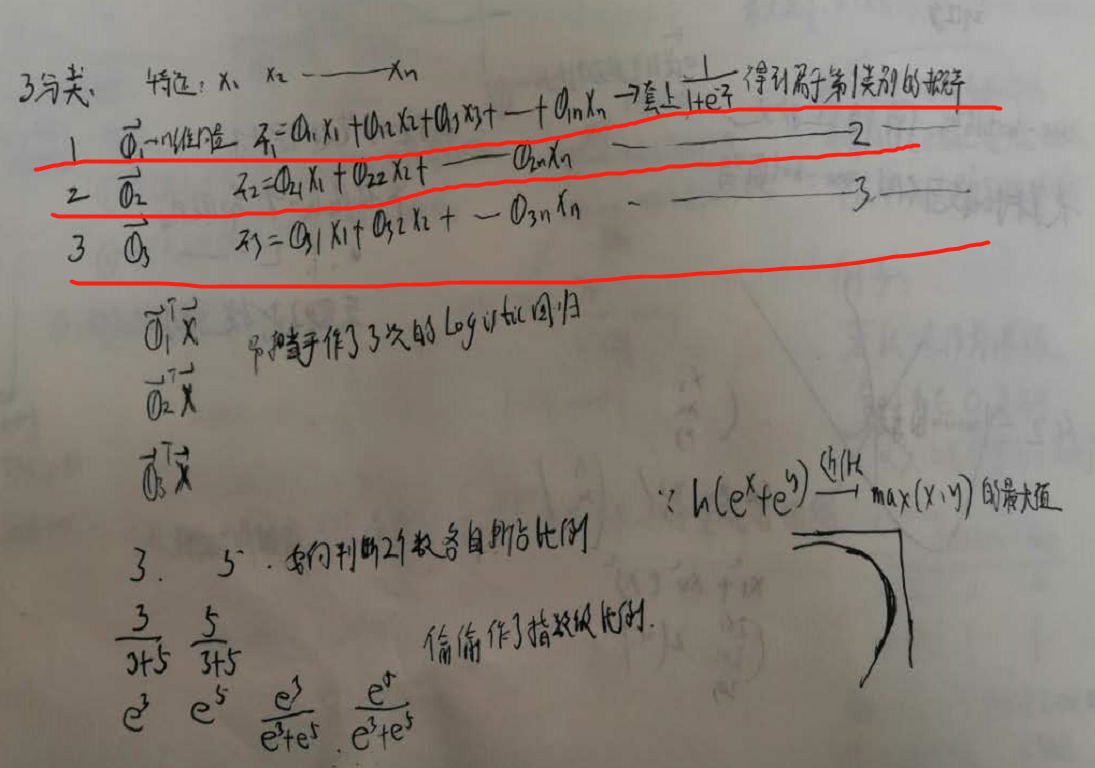 3分类、 特征: x₁ x₂ ——— xₙ
1 θ⃗₁→n维向量 z₁=θ₁₁x₁+θ₁₂x₂+θ₁₃x₃+…+θ₁ₙxₙ → 套上 1/(1+e^-z) 得到属于第1类别的概率
2 θ⃗₂ z₂=θ₂₁x₁+θ₂₂x₂+ —— θ₂ₙxₙ - ——— 2
3 θ⃗₃ z₃=θ₃₁x₁+θ₃₂x₂+ — θ₃ₙxₙ - ——— 3
θ⃗₁ᵀx⃗ 相当于作了3次的Logistic回归
θ⃗₂ᵀx⃗
θ⃗₃ᵀx⃗
∵ ln(eˣ+eʸ) → max(x,y) 的最大值
3. 5. 如何判断2个数各自所占比例
3/(3+5) 5/(3+5) 偷偷作了指数级比例.
e³ e⁵ e³/(e³+e⁵) . e⁵/(e³+e⁵)